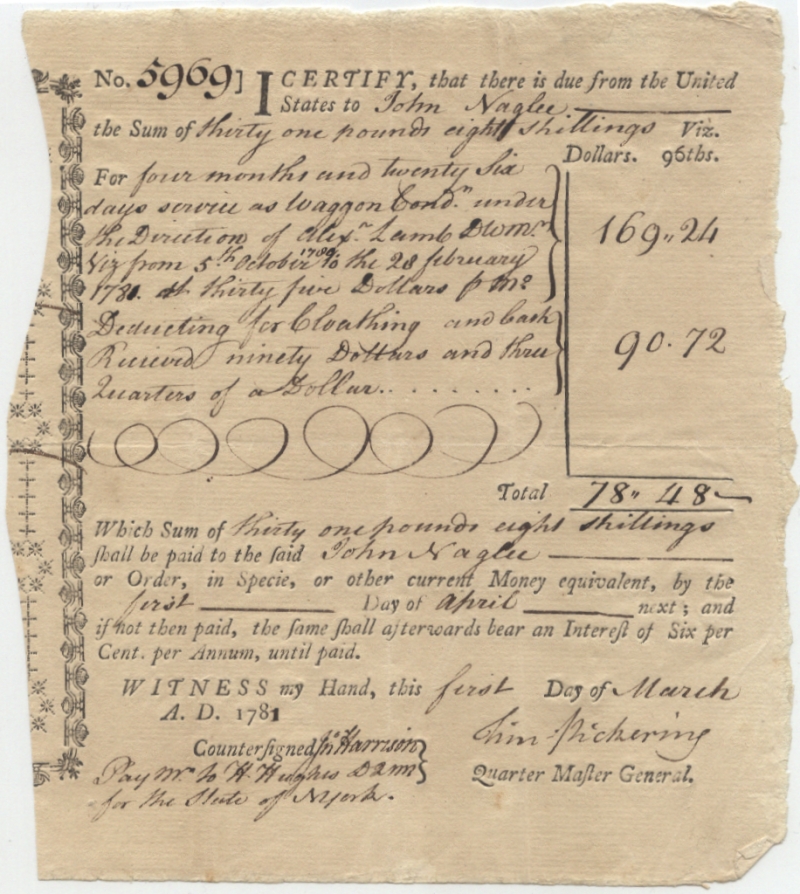 No. 5969] I CERTIFY, that there is due from the United
States to John Naglee
the Sum of thirty one pounds eight shillings Viz.
Dollars. 96ths.
For four months and twenty Six
days service as Waggon Condr. under
the Direction of Alexr. Lamb DWMr. 169" 24
Viz from 5th October 1780 to the 28 february
1781. at thirty five Dollars p Mo
Deducting for Cloathing and Cash
Received ninety Dollars and three 90. 72
Quarters of a Dollar. . . . . . . .
Total 78" 48
Which Sum of thirty one pounds eight shillings
ſhall be paid to the ſaid John Naglee
or Order, in Specie, or other current Money equivalent, by the
first Day of April next; and
if not then paid, the ſame ſhall afterwards bear an Intereſt of Six per
Cent. per Annum, until paid.
WITNESS my Hand, this first Day of March
A. D. 1781
Tim Pickering
Counterſigned Jn Harrison
Pay Mr. to H. Hughes DQMr Quarter Maſter General.
for the State of NYork.